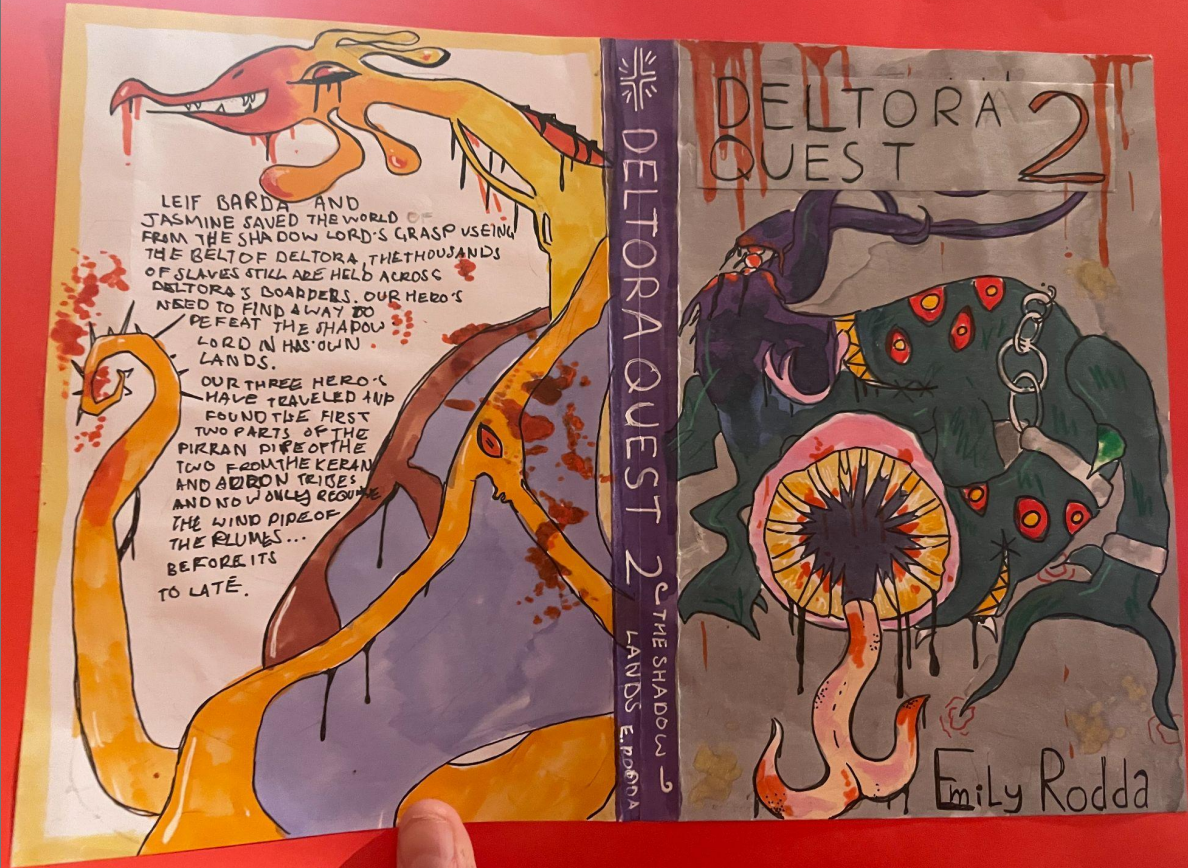 LEIF BARDA AND
JASMINE SAVED THE WORLD OF
FROM THE SHADOW LORD'S GRASP USEING
THE BELT OF DELTORA, THE THOUSANDS
OF SLAVES STILL ARE HELD ACROSS
DELTORA'S BOARDERS. OUR HERO'S
NEED TO FIND A WAY TO
DEFEAT THE SHADOW
LORD IN HAS OWN
LANDS.
OUR THREE HERO'S
HAVE TRAVELED AND
FOUND THE FIRST
TWO PARTS OF THE
PIRRAN PIPE OF THE
TWO FROM THE KERAN
AND AURON TRIBES
AND NOW ONLY REQUIRE
THE WIND PIPE OF
THE PLUMES...
BEFORE ITS
TO LATE.
DELTORA QUEST 2
THE SHADOW
LANDS E. RODDA
DELTORA 2
QUEST
EmiLy Rodda